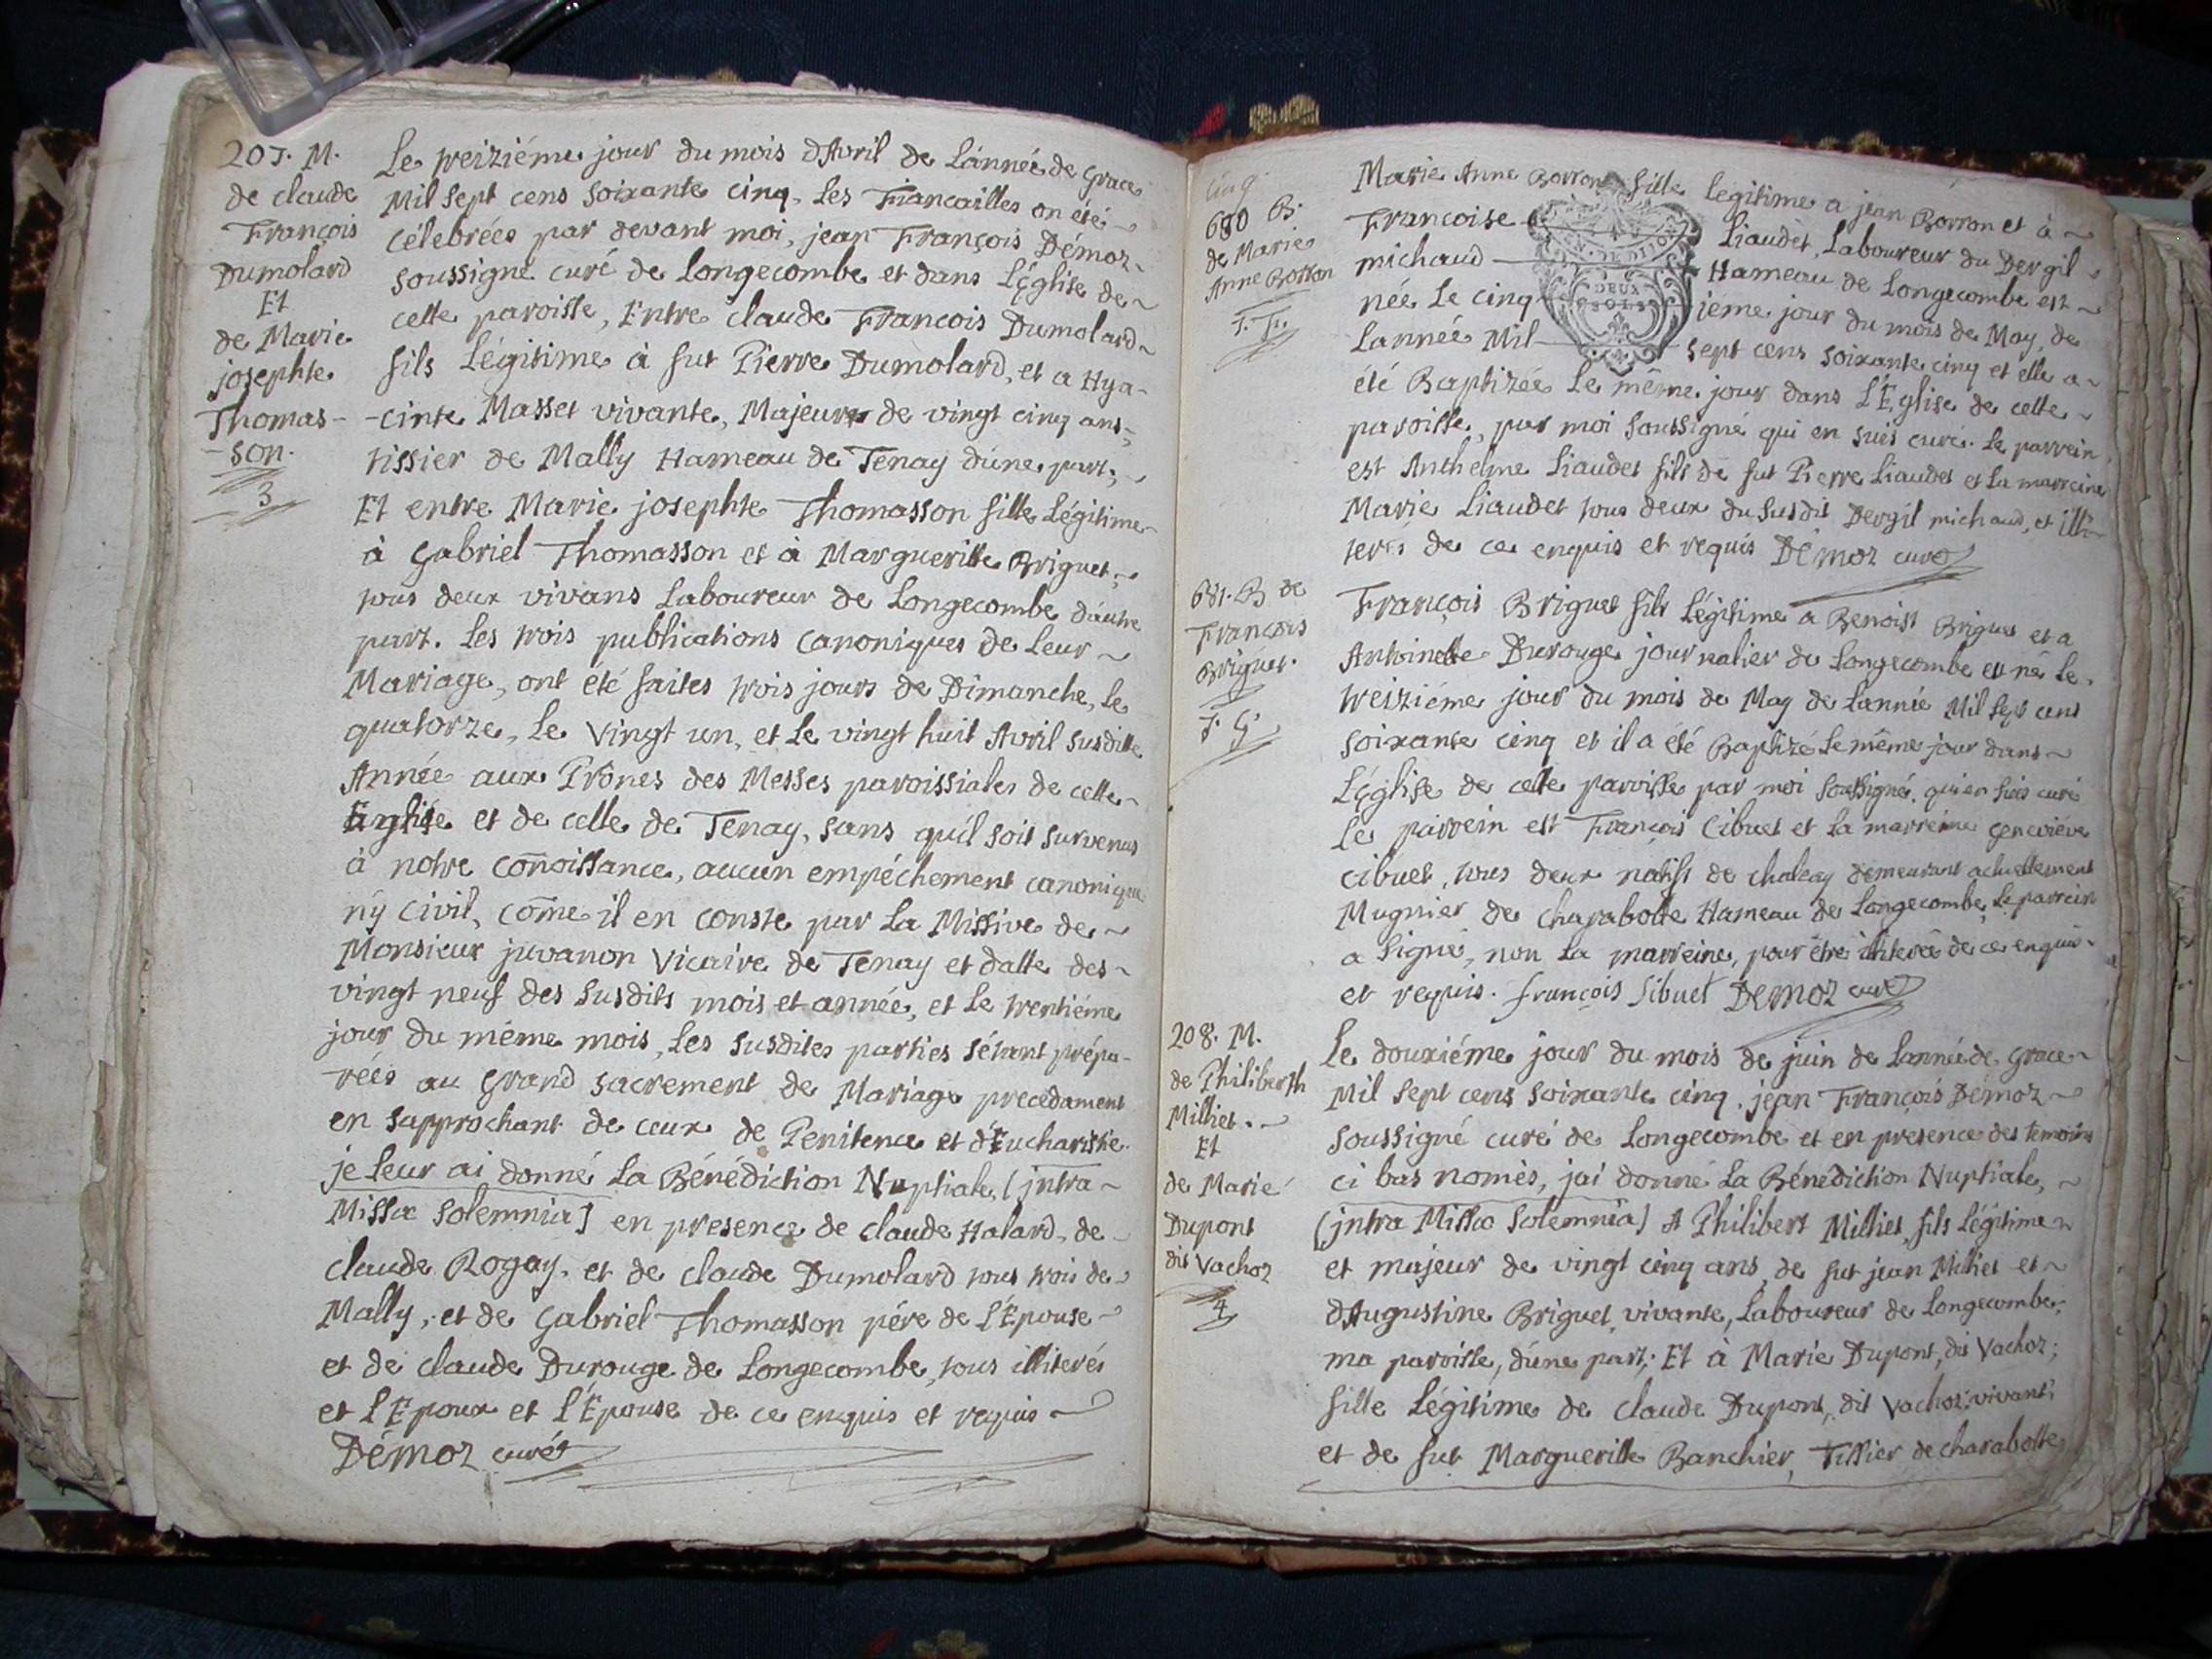 207. M.
de claude
François
Dumolard
Et
de Marie
josephte
Thomas-
-son.
3
Le treiziéme jour du mois d'Avril de L'année de Grace
Mil Sept cens Soixante cinq, Les Fiancailles on été
célebrées par devant moi, jean François Démoz
soussigné curé de Longecombe et dans L'Église de
cette paroisse, Entre claude François Dumolard
fils Légitime à fut Pierre Dumolard, et a Hya-
-cinte Masset vivante, Majeur de vingt cinq ans,
tissier de Mally Hameau de Tenay d'une part;
Et entre Marie josephte Thomasson fille Légitime
à Gabriel Thomasson et à Margueritte Briguet,
tous deux vivans Laboureur de Longecombe d'autre
part. Les trois publications canoniques de Leur
Mariage, ont été faites trois jours de Dimanche, Le
quatorze, Le Vingt un, et Le vingt huit Avril susditte
Année aux Prônes des Messes paroissiales de cette
Eglise et de celle de Tenay, sans qu'il soit survenus
à notre coñoissance, aucun empéchement canonique
ny civil, cõme il en conste par La Missive de
Monsieur juvanon Vicaire de Tenay et datte des
vingt neuf des susdits mois et année, et Le trentiéme
jour du méme mois, Les susdites parties s'étant prépa-
rées au Grand sacrement de Mariage precedament
en s'approchant de ceux de Penitence et d'Eucharistie
je leur ai donné La Bénédiction Nuptiale, (jntra
Missæ Solemnia) en presence de claude Halard, de
claude Rogay, et de claude Dumolard tous trois de
Mally; et de Gabriel Thomasson pére de L'Épouse
et de claude Durouge de Longecombe, tous illiterés
et L'Epoux et L'Épouse de ce enquis et requis
Démoz curé
680 B.
de Marie
Anne Borron
Marie Anne Borron fille legitime a jean Borron et à
Francoise Liaudet, Laboureur du Dergil
michaud Hameau de Longecombe est
née Le cinq jéme jour du mois de May, de
L'année Mil sept cens soixante cinq et elle a
EN. DE DIJON
DEUX
SOLS
été Baptizée Le même jour dans L'Église de cette
paroisse, par moi soussigné qui en suis curé. Le parrein
est Anthelme Liaudet fils de fut Pierre Liaudet et La marreine
Marie Liaudet tous deux du susdit Dergil michaud, et illi-
terés de ce enquis et requis Démoz curé
681. B de
François
Briguet.
J. G.
François Briguet fils Légitime a Benoist Briguet et a
Antoinette Durouge journalier de Longecombe est né Le
treiziéme jour du mois de May de L'année Mil Sept cens
soixante cinq et il a été Baptizé Le même jour dans
L'Église de cette paroisse par moi soussigné, qui en suis curé
Le parrein est François Cibuet et La marreine Geneviéve
Cibuet, tous deux natifs de chaley demeurant actuellement
Mugnier de Charabotte Hameau de Longecombe, Le parrein
a signé, non La marreine, pour être illiterée de ce enquis
et requis. françois Sibuet Démoz curé
208. M.
de Philiberth
Milliet.
Et
de Marie
Dupont
dit Vachoz
4
Le douxiéme jour du mois de juin de L'année de Grace
Mil Sept cens Soixante cinq, jean François Démoz
soussigné curé de Longecombe et en presence des temoins
ci bas només, j'ai donné La Bénédiction Nuptiale,
(jntra Missæ Solemnia) A Philibert Milliet, fils Légitime
et majeur de vingt cinq ans, de fut jean Milliet et
d'Augustine Briguet vivante, Laboureur de Longecombe,
ma paroisse, d'une part; Et à Marie Dupont, dit Vachoz;
fille Légitime de claude Dupont, dit Vachoz, vivant
et de fut Margueritte Banchier, Tissier de charabotte